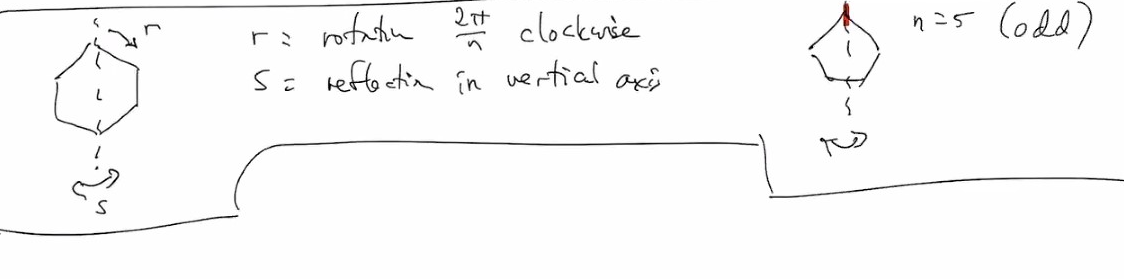 r
r = rotation 2π/n clockwise
s = reflection in vertical axis
n=5 (odd)
s